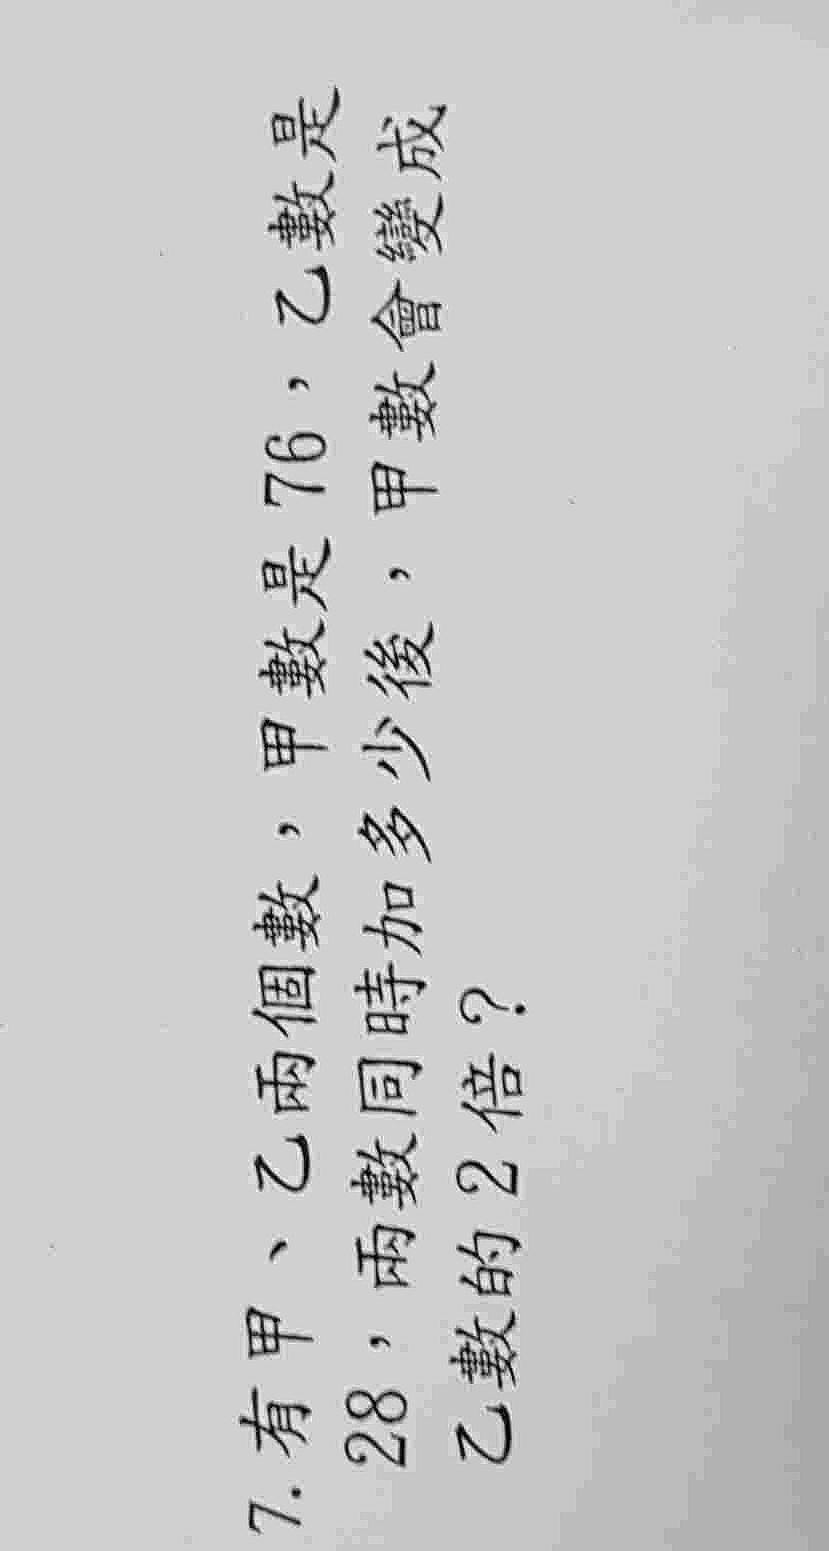 7. 有甲、乙兩個數，甲數是76，乙數是
28，兩數同時加多少後，甲數會變成
乙數的2倍？